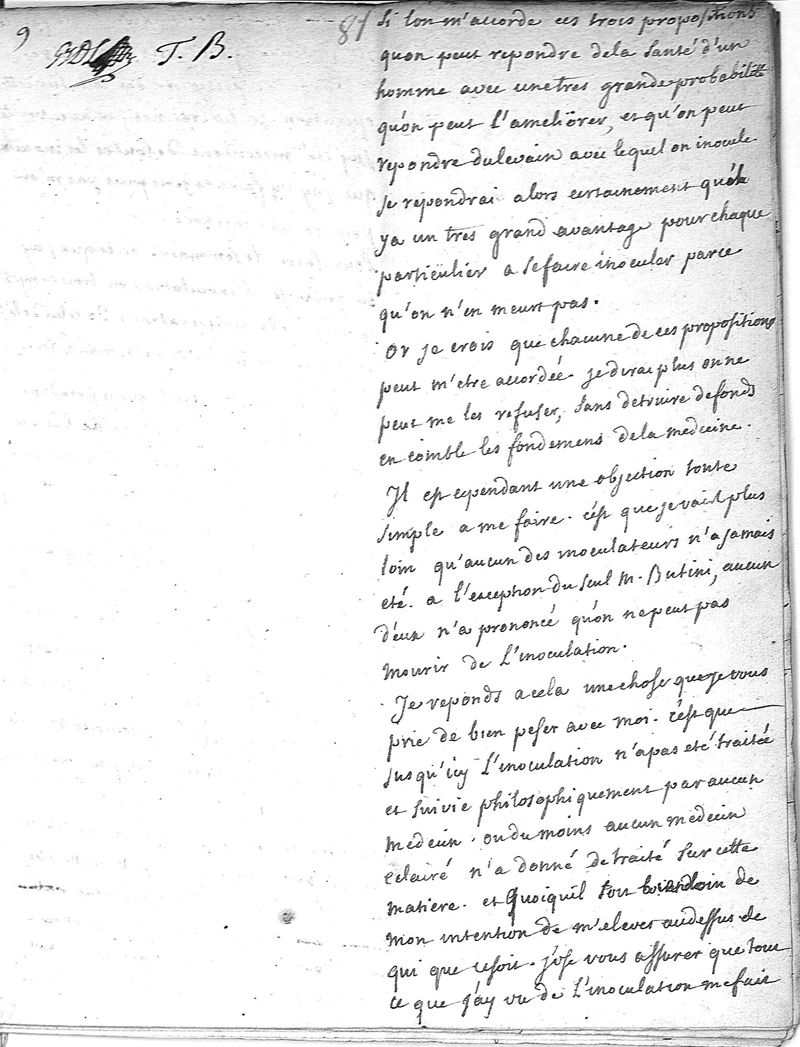 9
T. B.
81
Si lon m'accorde ces trois propositions
quon peut repondre dela santé d'un
homme avec unetres grande probabilité
qu'on peut l'ameliorer, et qu'on peut
repondre dulevain avec lequel on inocule
Je repondrai alors certainement qu'il
ya un tres grand avantage pour chaque
particulier a sefaire inoculer parce
qu'on n'en meurt pas.
Or je crois que chacune de ces propositions
peut m'etre accordée. je dirai plus on ne
peut me les refuser, sans detruire defonds
en comble les fondemens dela medecine.
Il est cependant une objection toute
simple a me faire. c'est que je vais plus
loin qu'aucun des inoculateurs n'a jamais
eté. a l'exception du seul M. Butini, aucun
d'eux n'a prononcé qu'on ne peut pas
mourir de L'inoculation.
Je reponds a cela une chose que je vous
prie de bien peser avec moi. c'est que
jusqu'icy L'inoculation n'a pas eté traitée
et suivie philosophiquement par aucun
medecin. ou du moins aucun medecin
eclairé n'a donné de traité sur cette
matiere. et Quoiqu'il soit bien loin de
mon intention de m'elever audessus de
qui que ce soit. j'ose vous assurer que tout
ce que j'ay vu de L'inoculation me fait